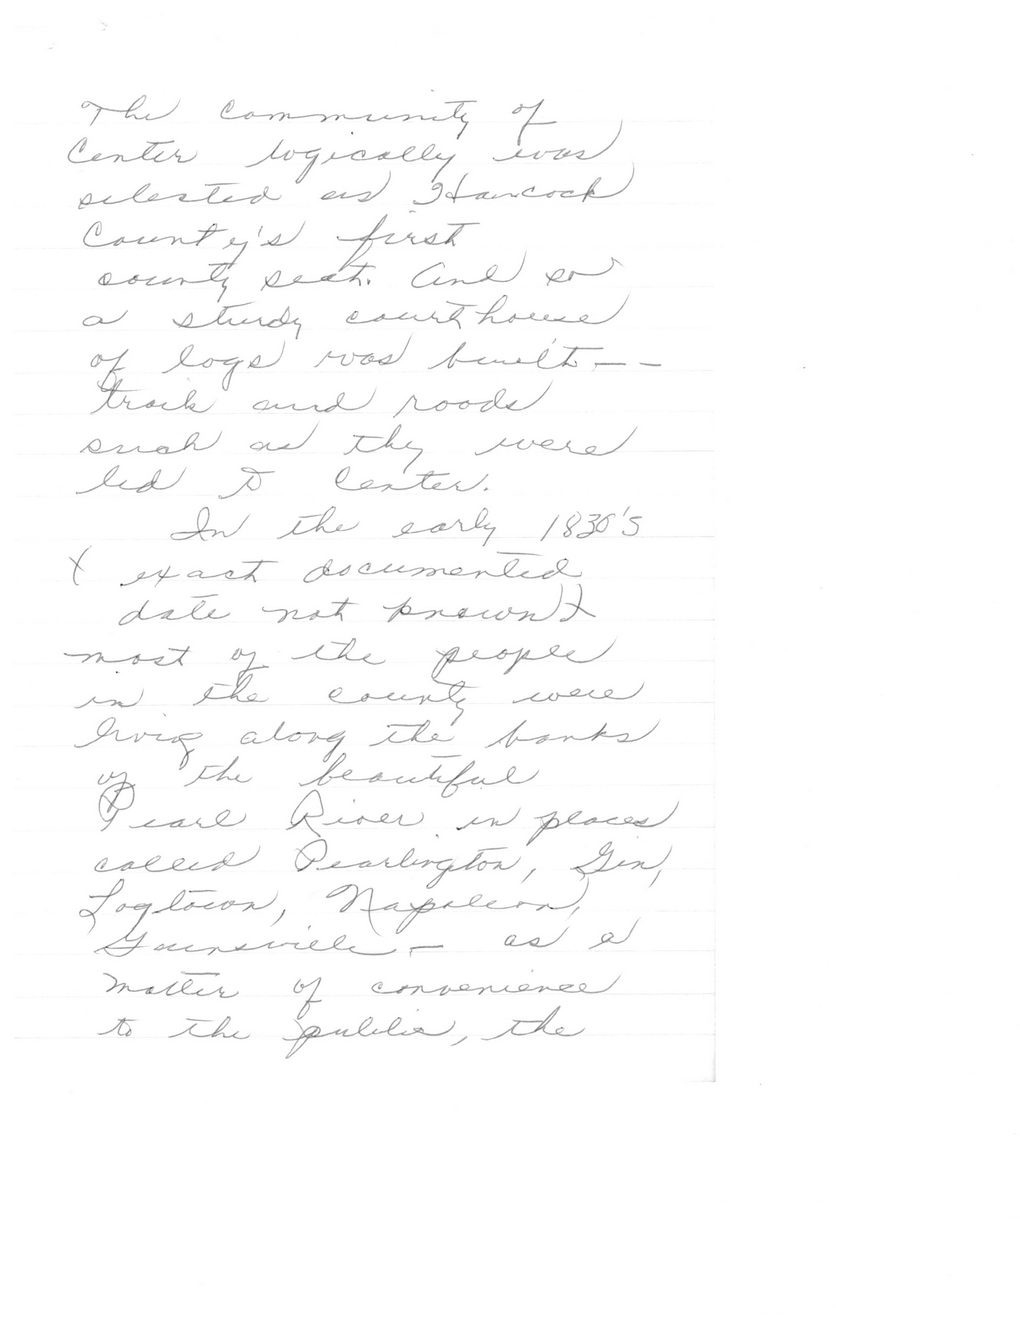 The community of
Center logically was
selected as Hancock
County's first
county seat. And so
a sturdy courthouse
of logs was built--
trails and roads
such as they were
led to Center.
In the early 1830's
(exact documented
date not known)
most of the people
in the county were
living along the banks
of the beautiful
Pearl River in places
called Pearlington, Gin,
Logtown, Napoleon,
Gainsville - as a
matter of convenience
to the public, the